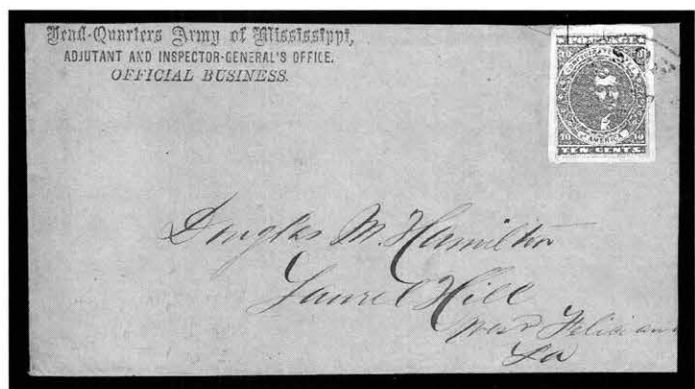 Head-Quarters Army of Mississippi,
ADJUTANT AND INSPECTOR-GENERAL'S OFFICE.
OFFICIAL BUSINESS.
CONFEDERATE STATES
OF AMERICA
10 10
TEN CENTS
Douglas M. Hamilton
Laurel Hill
West Feliciana
La